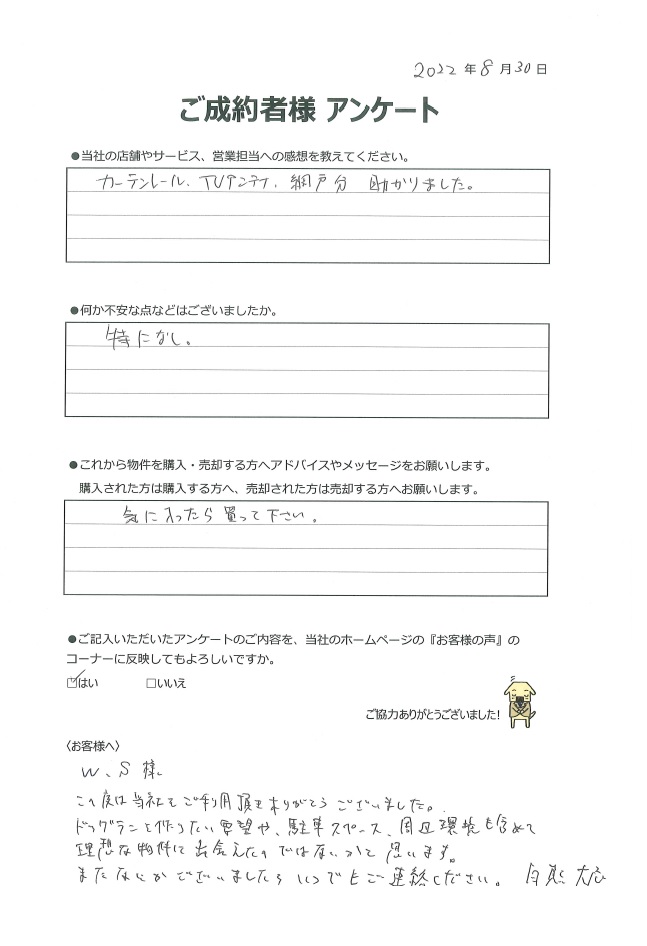 2022年8月30日
ご成約者様 アンケート
●当社の店舗やサービス、営業担当への感想を教えてください。
カーテンレール、TVアンテナ、網戸分 助かりました。
●何か不安な点などはございましたか。
特になし。
●これから物件を購入・売却する方へアドバイスやメッセージをお願いします。
購入された方は購入する方へ、売却された方は売却する方へお願いします。
気に入ったら買って下さい。
●ご記入いただいたアンケートのご内容を、当社のホームページの『お客様の声』の
コーナーに反映してもよろしいですか。
☑はい □いいえ
ご協力ありがとうございました!
〈お客様へ〉
W、S 様
この度は当社をご利用頂きありがとうございました。
ドッグランを作りたい要望や、駐車スペース、周辺環境も含めて
理想な物件に出会えたのではないかと思います。
またなにかございましたらいつでもご連絡ください。